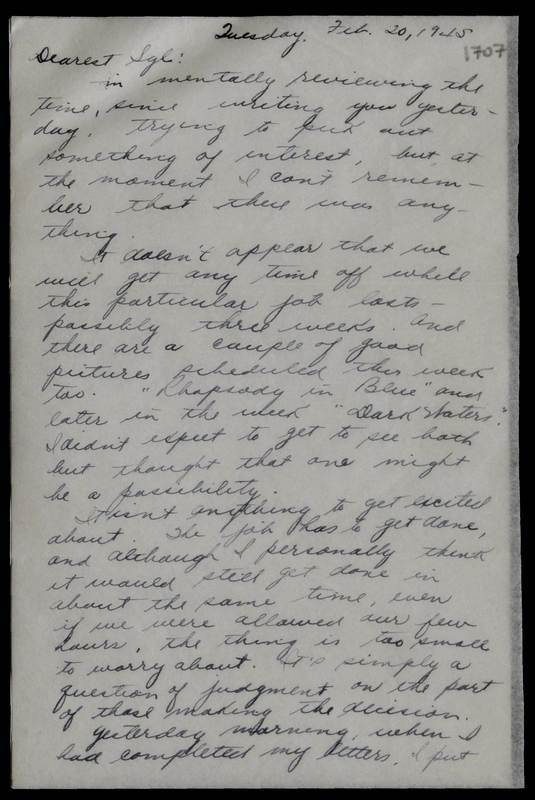 Tuesday. Feb. 20, 1945
1707
Dearest Syl:
In mentally reviewing the
time, since writing you yester-
day, trying to pick out
something of interest, but at
the moment I can't remem-
ber that there was any-
thing.
It doesn't appear that we
will get any time off while
this particular job lasts -
possibly three weeks. And
there are a couple of good
pictures scheduled this week
too. "Rhapsody in Blue" and
later in the week "Dark Waters".
I didn't expect to get to see both
but thought that one might
be a possibility.
It isn't anything to get excited
about. The job has to get done,
and although I personally think
it would still get done in
about the same time, even
if we were allowed our few
hours, the thing is too small
to worry about. It's simply a
question of judgment on the part
of those making the decision.
Yesterday morning, when I
had completed my letters, I put